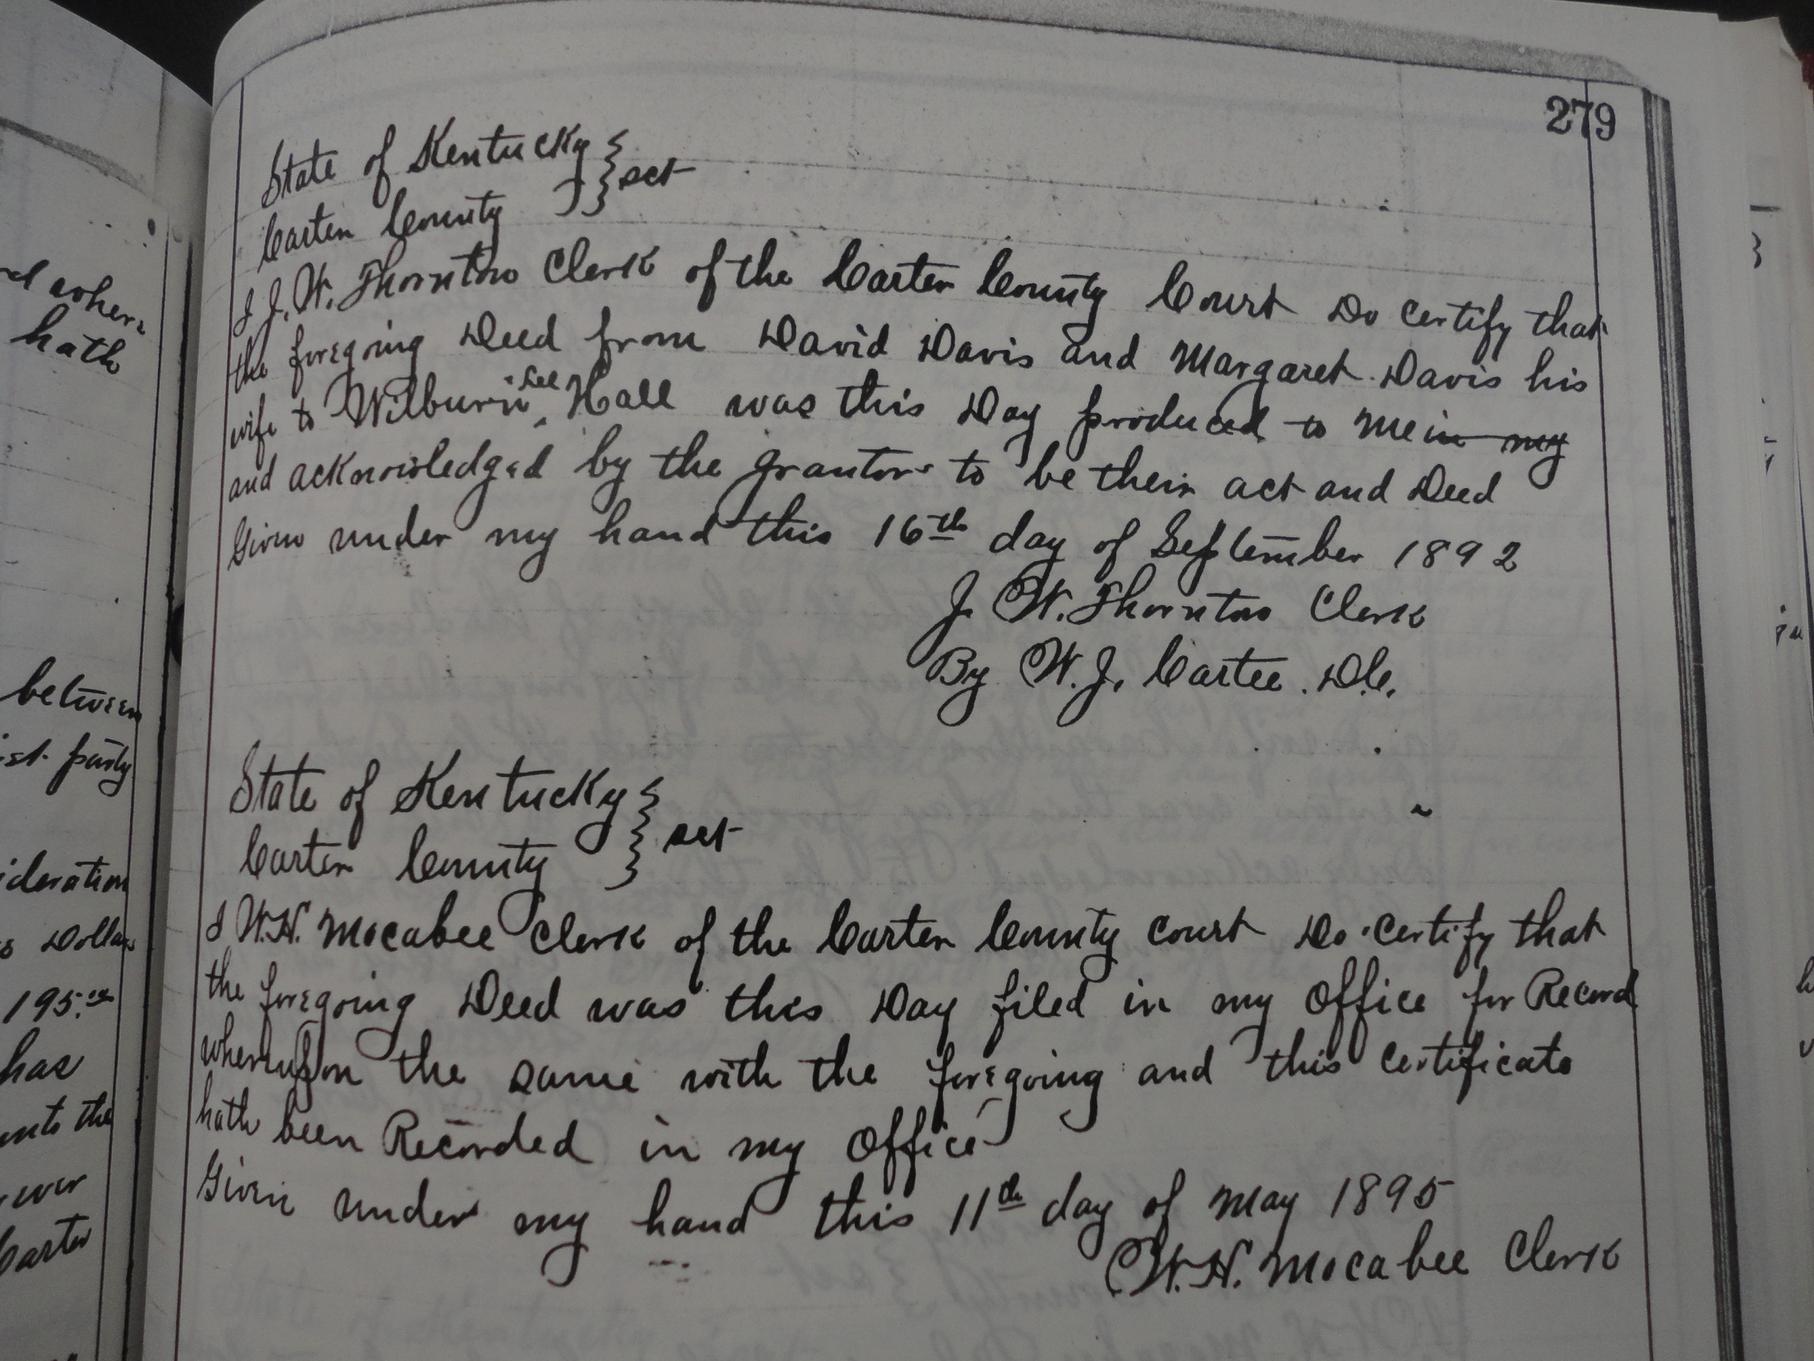 hath
between
party
Dollar
195.
has
unto the
279
State of Kentucky } sct
Carter County
I J. W. Thornton Clerk of the Carter County Court Do certify that
the foregoing Deed from David Davis and Margaret Davis his
wife to Wilburn Lee Hall was this Day produced to me in my
and acknowledged by the grantors to be their act and Deed
Given under my hand this 16th day of September 1892
J. W. Thornton Clerk
By W. J. Cartee. D.C.
State of Kentucky } sct
Carter County
I W. H. Mocabee Clerk of the Carter County court Do certify that
the foregoing Deed was this Day filed in my office for Record
whereupon the same with the foregoing and this certificate
hath been Recorded in my office
Given under my hand this 11th day of May 1895
W. H. Mocabee Clerk